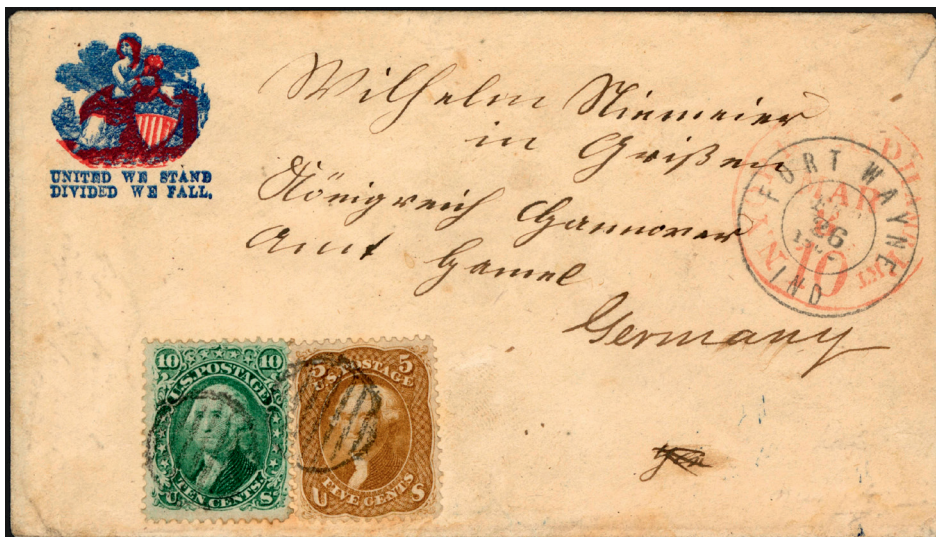 UNITED WE STAND
DIVIDED WE FALL,
Wilhelm Niemeier
in Grißen
Königreich Hannover
Amt Hamel
Germany
FORT WAYNE
26
IND
MAR
10
N.Y.
PKT
10 10
U.S. POSTAGE
TEN CENTS
U S
5 5
U.S. POSTAGE
FIVE CENTS
U S